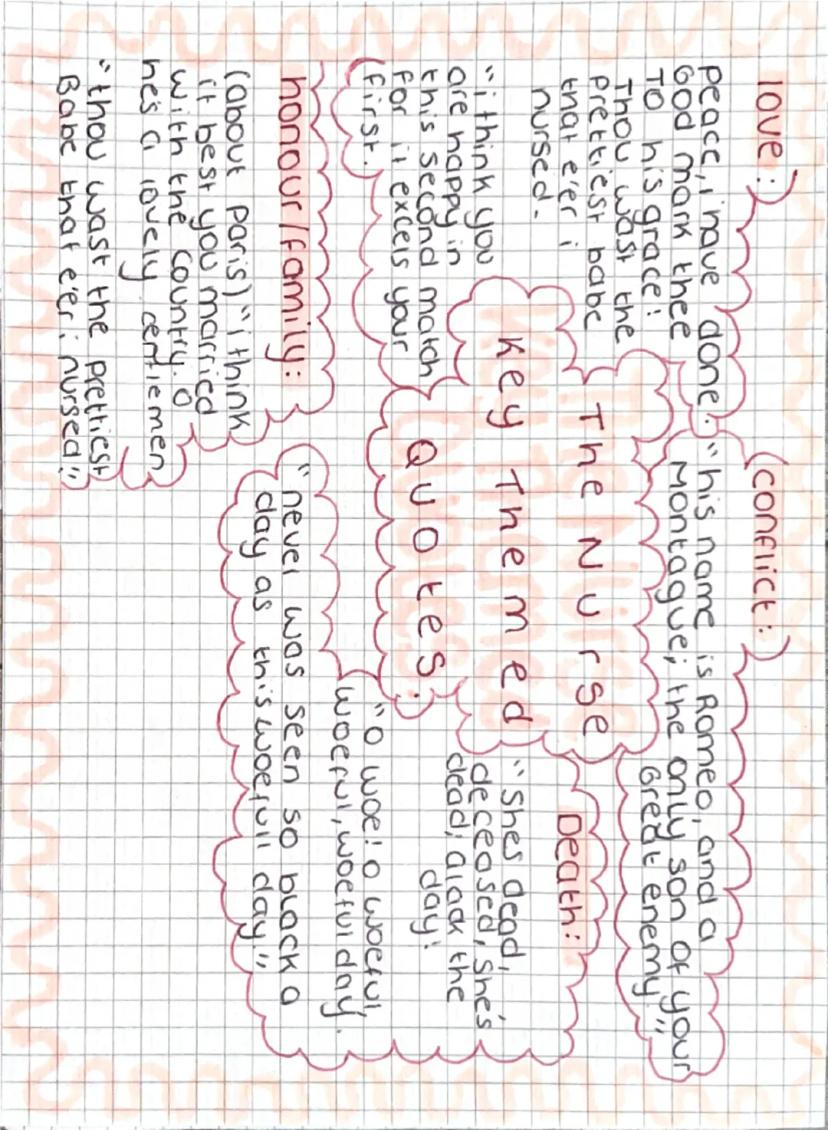 love:
peace, i have done.
God mark thee
To his grace!
Thou wast the
prettiest babe
that e'er i
nursed.
"i think you
are happy in
this second match
for it excels your
first.
(conflict:)
"his name is Romeo, and a
Montague; the only son of your
Great enemy"
The Nurse
Key Themed
Quotes:
Death:
"Shes dead,
deceased, she's
dead; alack the
day!
"O woe! O woeful,
woeful, woeful day.
"never was seen so black a
day as this woefull day."
honour/family:
(about Paris) "i think
it best you married
with the country. O
he's a lovely gentlemen
"thou wast the prettiest
Babe that e'er i nursed"